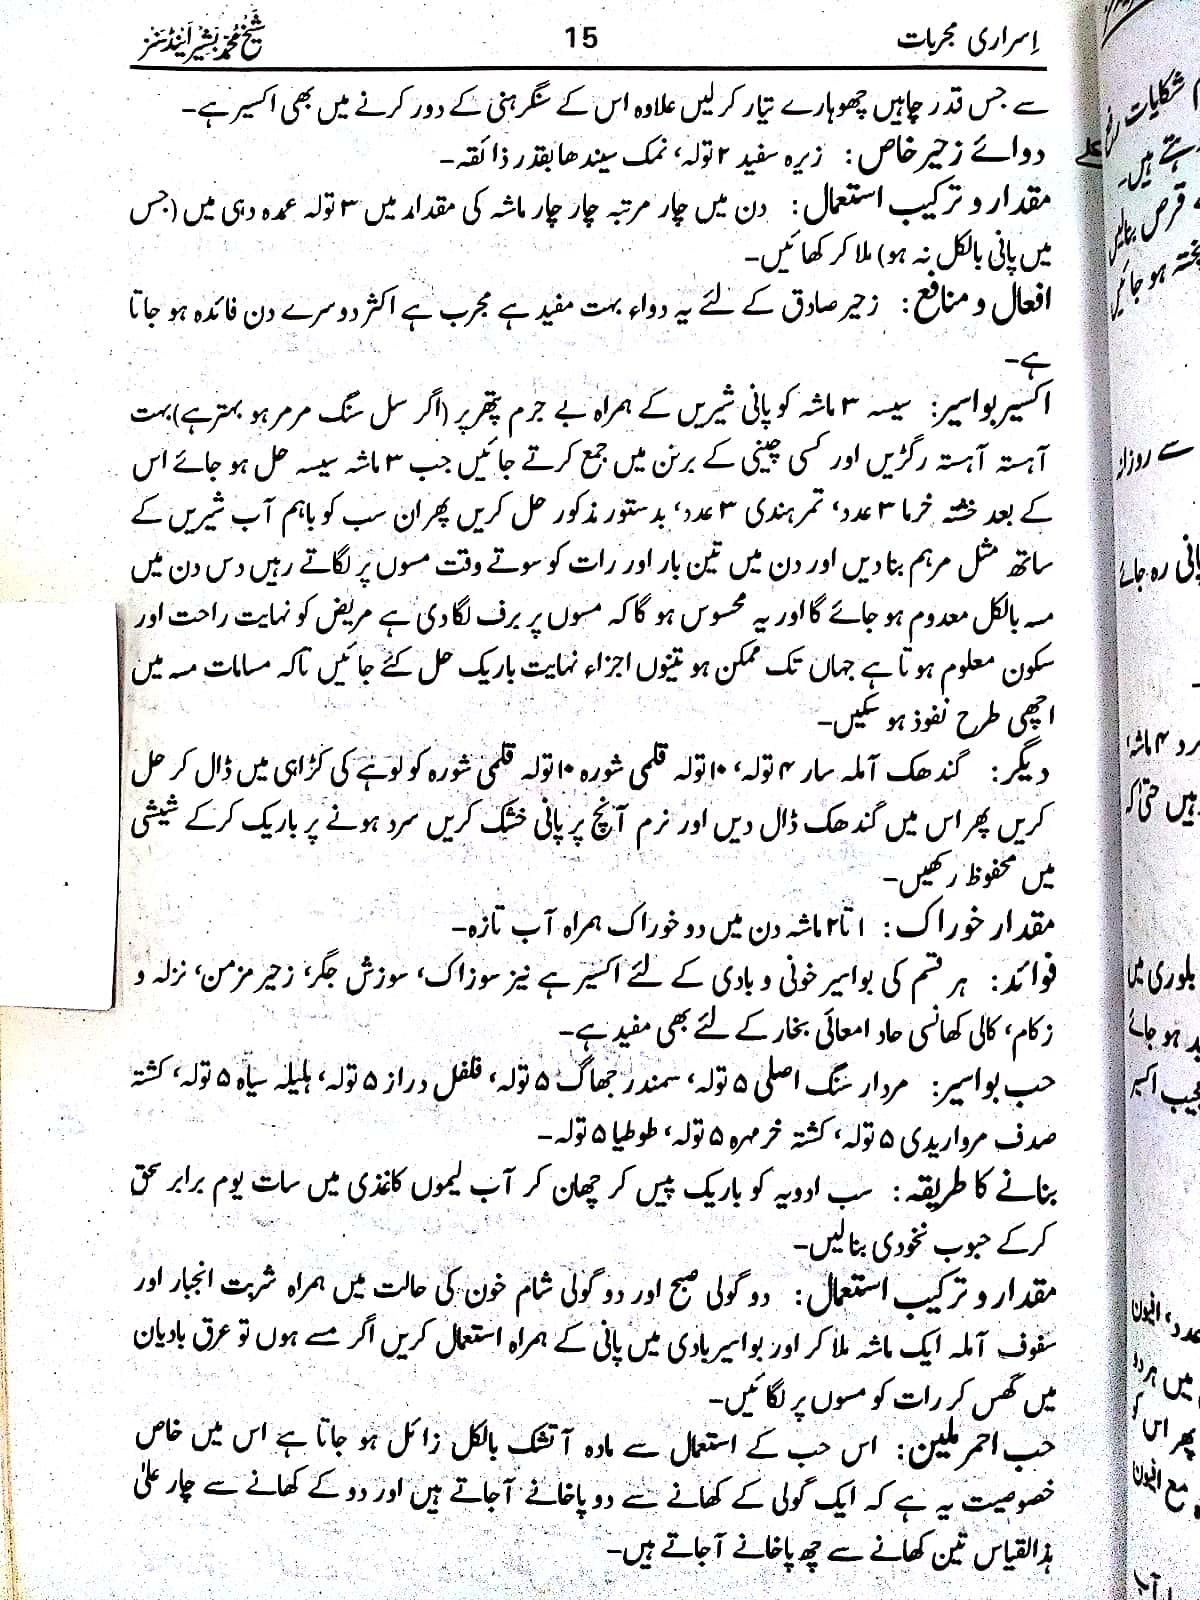 اِسراری مجربات 15 شیخ محمد بشیر اینڈ سنز
سے جس قدر چاہیں چھوہارے تیار کرلیں علاوہ اس کے سنگرہنی کے دور کرنے میں بھی اکسیر ہے۔
دوائے زحیر خاص: زیرہ سفید ۲ تولہ، نمک سیندھا بقدر ذائقہ۔
مقدار و ترکیب استعمال: دن میں چار مرتبہ چار چار ماشہ کی مقدار میں ۳ تولہ عمدہ دہی میں (جس
میں پانی بالکل نہ ہو) ملا کر کھائیں۔
افعال و منافع: زحیر صادق کے لئے یہ دواء بہت مفید ہے مجرب ہے اکثر دوسرے دن فائدہ ہو جاتا
ہے۔
اکسیر بواسیر: سیسہ ۳ ماشہ کو پانی شیریں کے ہمراہ بے جرم پتھر پر (اگر سل سنگ مرمر ہو بہتر ہے) بہت
آہستہ آہستہ رگڑیں اور کسی چینی کے برتن میں جمع کرتے جائیں جب ۳ ماشہ سیسہ حل ہو جائے اس
کے بعد خستہ خرما ۳ عدد، تمر ہندی ۳ عدد، بدستور مذکور حل کریں پھر ان سب کو باہم آب شیریں کے
ساتھ مثل مرہم بنا دیں اور دن میں تین بار اور رات کو سوتے وقت مسوں پر لگاتے رہیں دس دن میں
مسہ بالکل معدوم ہو جائے گا اور یہ محسوس ہو گا کہ مسوں پر برف لگا دی ہے مریض کو نہایت راحت اور
سکون معلوم ہوتا ہے جہاں تک ممکن ہو تینوں اجزاء نہایت باریک حل کئے جائیں تاکہ مسامات مسہ میں
اچھی طرح نفوذ ہو سکیں۔
دیگر: گندھک آملہ سار ۴ تولہ، ۱۰ تولہ قلمی شورہ ۱۰ تولہ قلمی شورہ کو لوہے کی کڑاہی میں ڈال کر حل
کریں پھر اس میں گندھک ڈال دیں اور نرم آنچ پر پانی خشک کریں سرد ہونے پر باریک کرکے شیشی
میں محفوظ رکھیں۔
مقدار خوراک: ۱ تا ۲ ماشہ دن میں دو خوراک ہمراہ آب تازہ۔
فوائد: ہر قسم کی بواسیر خونی و بادی کے لئے اکسیر ہے نیز سوزاک، سوزش جگر، زحیر مزمن، نزلہ و
زکام، کالی کھانسی حاد امعائی بخار کے لئے بھی مفید ہے۔
حب بواسیر: مردار سنگ اصلی ۵ تولہ، سمندر جھاگ ۵ تولہ، فلفل دراز ۵ تولہ، ہلیلہ سیاہ ۵ تولہ، کشتہ
صدف مرواریدی ۵ تولہ، کشتہ خرمہرہ ۵ تولہ، طوطیا ۵ تولہ۔
بنانے کا طریقہ: سب ادویہ کو باریک پیس کر چھان کر آب لیموں کاغذی میں سات یوم برابر سحق
کرکے حبوب نخودی بنالیں۔
مقدار و ترکیب استعمال: دو گولی صبح اور دو گولی شام خون کی حالت میں ہمراہ شربت انجبار اور
سفوف آملہ ایک ماشہ ملا کر اور بواسیر بادی میں پانی کے ہمراہ استعمال کریں اگر مسے ہوں تو عرق بادیان
میں گھس کر رات کو مسوں پر لگائیں۔
حب احمر ملین: اس حب کے استعمال سے مادہ آتشک بالکل زائل ہو جاتا ہے اس میں خاص
خصوصیت یہ ہے کہ ایک گولی کے کھانے سے دو پاخانے آجاتے ہیں اور دو کے کھانے سے چار علیٰ
ہذالقیاس تین کھانے سے چھ پاخانے آجاتے ہیں۔
شکایات
ہیں۔
قرص بنالیں
ہو جائیں
سے روزانہ
پانی رہ جائے
ماشہ
ہیں حتیٰ کہ
بلوری میں
ہو جائے
اکسیر
عدد، افیون
میں ہر دو
پھر اس کو
مع افیون